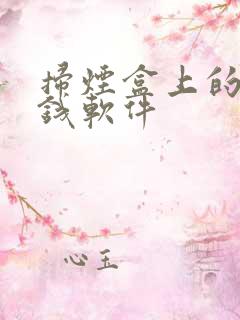 掃煙盒上的
錢軟件
心玉